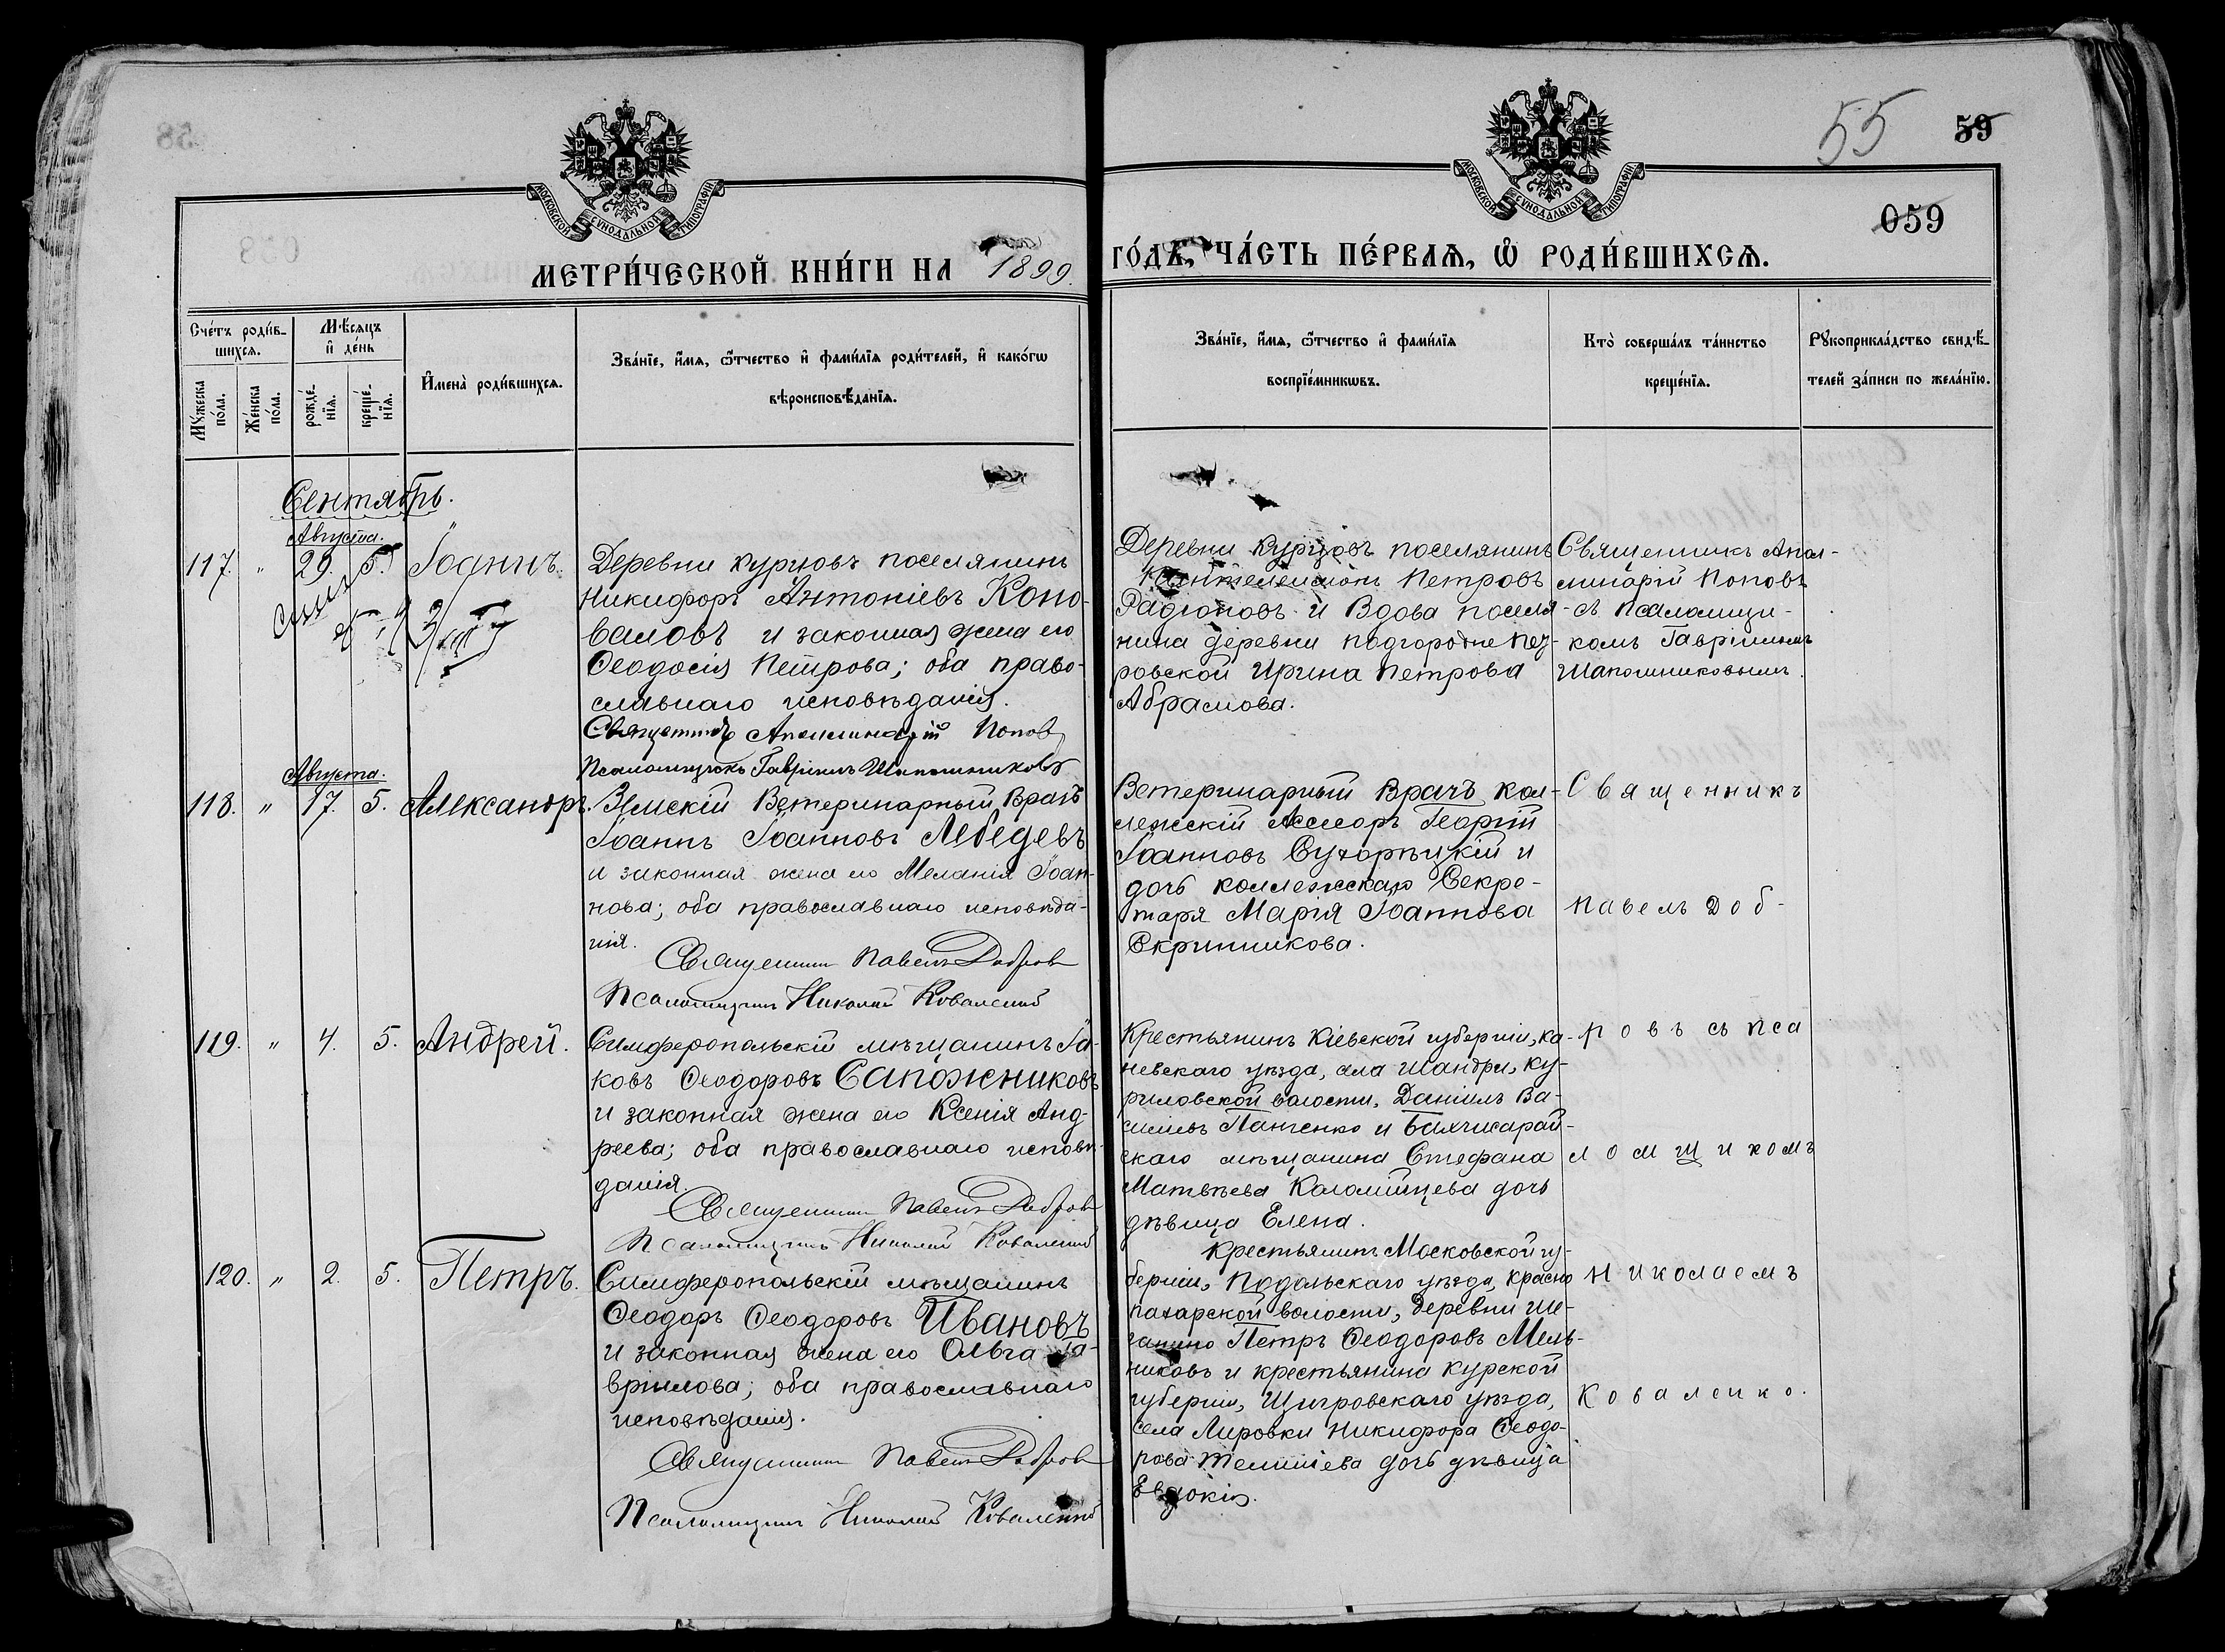 55
59
059
МОСКОВСКОЙ СѴНОДАЛЬНОЙ ТИПОГРАФІИ
МОСКОВСКОЙ СѴНОДАЛЬНОЙ ТИПОГРАФІИ
МЕТРИ́ЧЕСКОЙ КНИ́ГИ НА 1899.
ГО́ДЪ, ЧА́СТЬ ПЕ́РВАѦ, Ѡ҆ РОДИ́ВШИХСѦ.
Сче́тъ роди́в-
шихсѧ.
Мꙋ́жеска по́ла.
Же́нска по́ла.
Мѣ́сѧцъ
и҆ де́нь
рожде́-
нїѧ.
креще́-
нїѧ.
И҆мена̀ роди́вшихсѧ.
Зва́нїе, и҆́мѧ, ѻ҆́тчество и҆ фами́лїѧ роди́телей, и҆ како́гѡ
вѣроисповѣ́данїѧ.
Зва́нїе, и҆́мѧ, ѻ҆́тчество и҆ фами́лїѧ
воспрїе́мникѡвъ.
Кто̀ соверша́лъ та́инство
креще́нїѧ.
Рꙋкоприкла́дство свидѣ́-
телей за́писи по жела́нїю.
Сентябрь.
Августа.
117. " 29. 5. Іоаннъ.
Деревни Курцовъ поселянинъ
Никифоръ Антоніевъ Коно-
валовъ и законная жена его
Ѳеодосія Петрова; оба право-
славнаго исповѣданія.
Священникъ Аполлинарій Попов
Псаломщикъ Гавріилъ Шапошниковъ
Деревни Курцовъ поселянинъ
Пантелеимонъ Петровъ
Радіоновъ и Вдова поселя-
нина деревни Подгородне Пет-
ровской Ирина Петрова
Абрамова.
Священникъ Апол-
линарій Поповъ
съ псаломщи-
комъ Гавріиломъ
Шапошниковымъ.
Августа.
118. " 17. 5. Александръ.
Земскій Ветеринарный Врачъ
Іоаннъ Іоанновъ Лебедевъ
и законная жена его Меланія Іоан-
нова; оба православнаго исповѣда-
нія.
Священник Павелъ Добров
Псаломщикъ Николай
Ветеринарный Врачъ кол-
лежскій Ассесоръ Георгій
Іоанновъ Сухорѣцкій и
дочь коллежскаго Секре-
таря Марія Іоаннова
Скрипникова.
Священникъ
Павелъ Доб-
119. " 4. 5. Андрей.
Симферопольскій мѣщанинъ Іа-
ковъ Ѳеодоровъ Сапожниковъ
и законная жена его Ксенія Анд-
реева; оба православнаго исповѣ-
данія.
Священник Павелъ Добров
Псаломщикъ Николай
Крестьянинъ Кіевской губерніи, ка-
невскаго уѣзда, села Шандри, Ку-
риловской волости, Даніилъ Ва-
силіевъ Панченко и Бахчисарай-
скаго мѣщанина Стефана
Матвѣева Коломійцева дочь
дѣвица Елена.
ровъ съ пса
ломщикомъ
120. " 2. 5. Петръ.
Симферопольскій мѣщанинъ
Ѳеодоръ Ѳеодоровъ Ивановъ
и законная жена его Ольга Га-
вріилова; оба православнаго
исповѣданія.
Священник Павелъ Добров
Псаломщикъ Николай
Крестьянинъ Московской гу-
берніи, Подольскаго уѣзда, Красно
пахарской волости, деревни
Петръ Ѳеодоровъ Мель-
никовъ и крестьянина Курской
губерніи, Щигровскаго уѣзда,
села Никифора Ѳеодо-
рова дочь дѣвица
Евдокія.
Николаемъ
Коваленко.